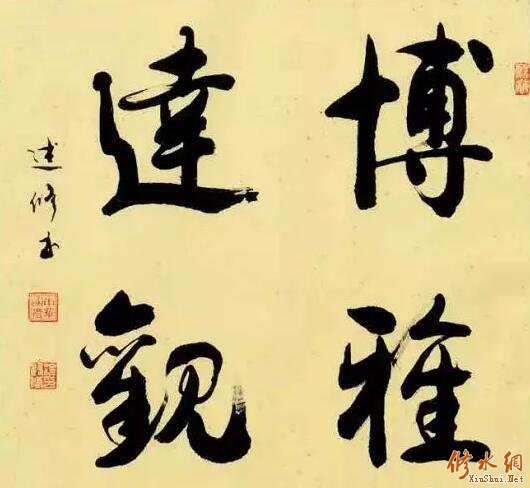 博雅
達觀
修书
修水網
XiuShui.Net